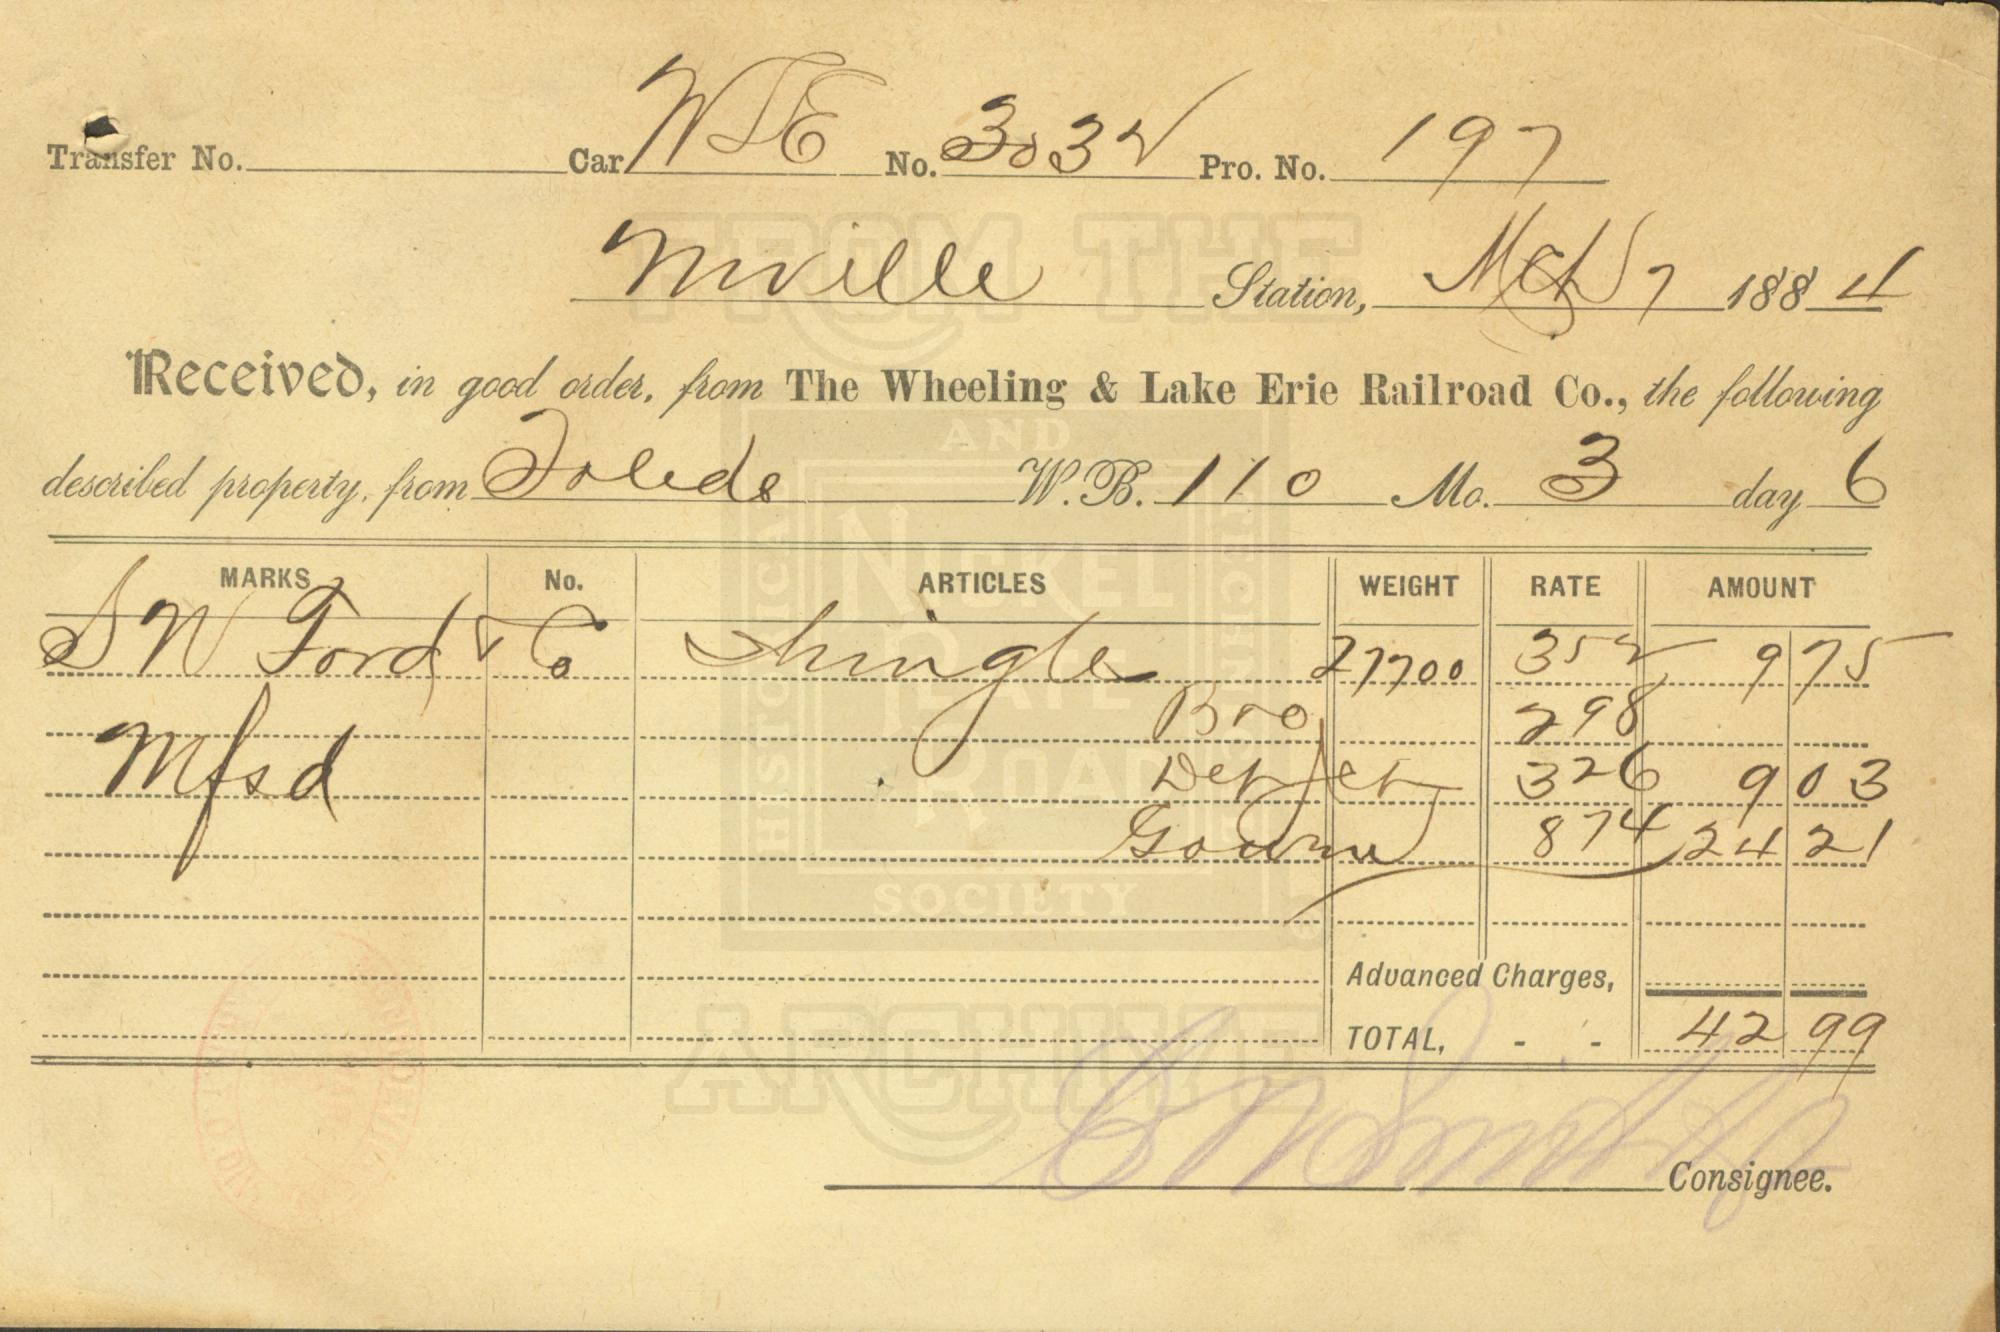 Transfer No. Car W&LE No. 3032 Pro. No. 197
FROM THE
Nwille Station, Mch 7 1884
Received, in good order, from The Wheeling & Lake Erie Railroad Co., the following
AND
described property, from Toledo W. B. 110 Mo. 3 day 6
MARKS No. ARTICLES WEIGHT RATE AMOUNT
S W Ford & Co Shingle 27700 352 9 75
Bro 298
Mfsd 326 9 03
874 24 21
HISTORICAL
NICKEL
PLATE
ROAD
SOCIETY
Advanced Charges,
TOTAL, - - 42 99
ARCHIVE
Consignee.